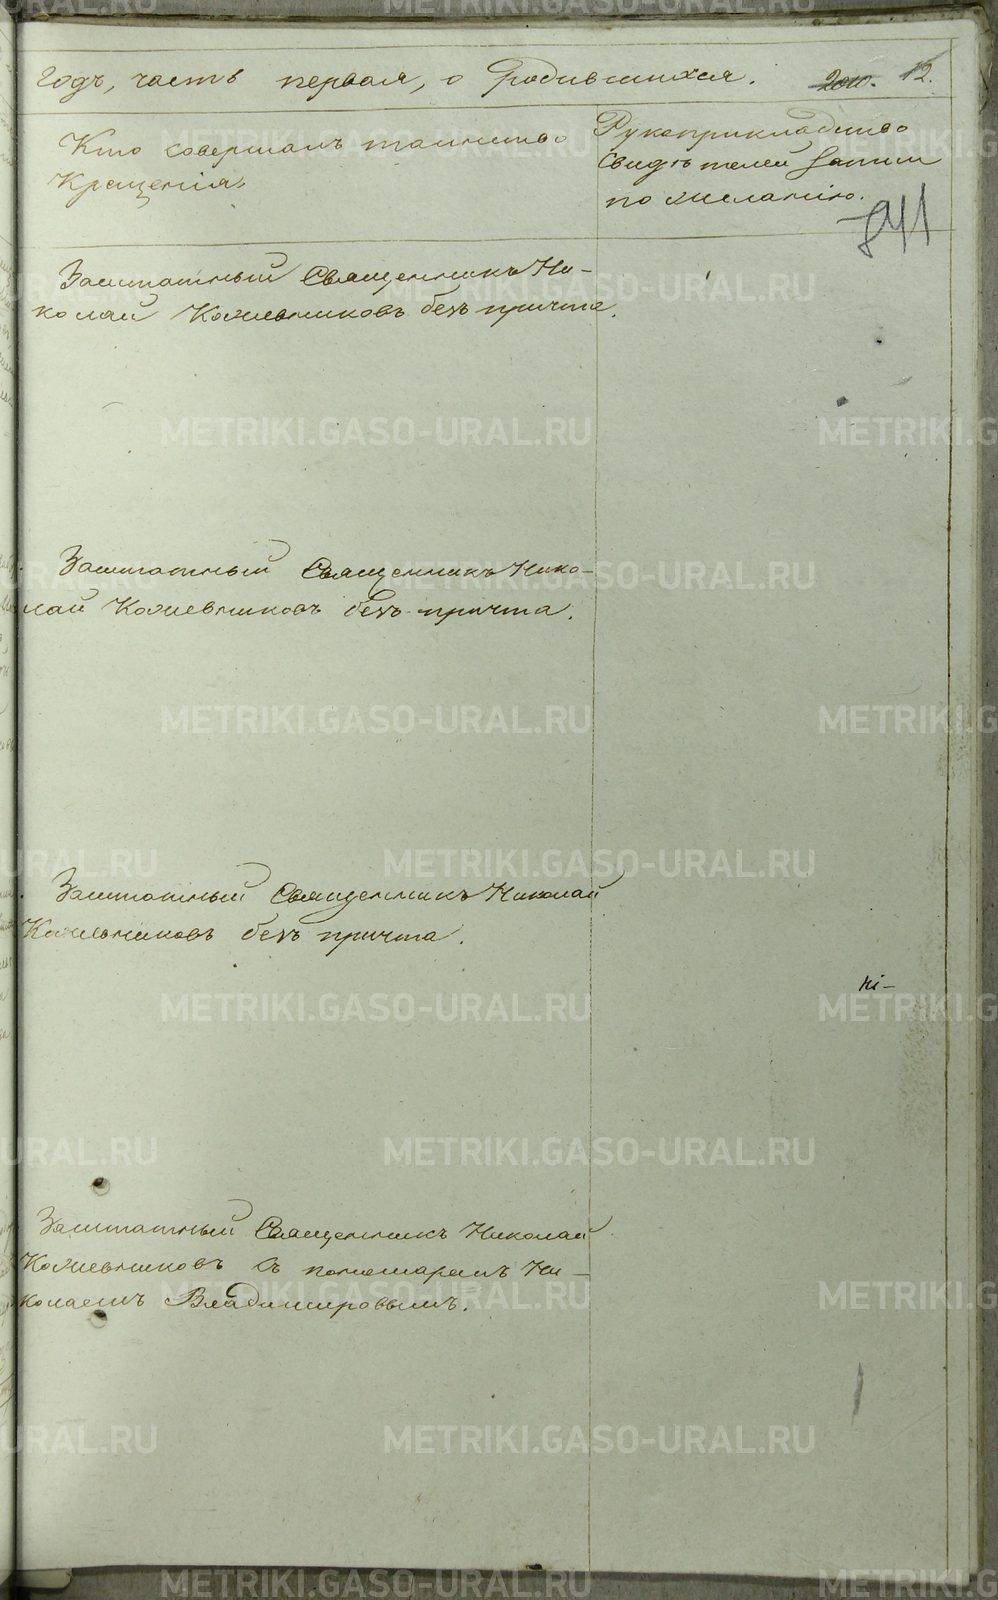 годъ, часть первая, о родившихся. 12.
Кто совершалъ таинство
Крещенія.
Рукоприкладство
свидѣтелей записи
по желанію.
Заштатный Священникъ Ни-
колай Кожевниковъ безъ причта.
Заштатный Священникъ Нико-
лай Кожевниковъ безъ причта.
Заштатный Священникъ Николай
Кожевниковъ безъ причта.
Заштатный Священникъ Николай
Кожевниковъ съ пономаремъ Ни-
колаемъ Владимировымъ.
METRIKI.GASO-URAL.RU